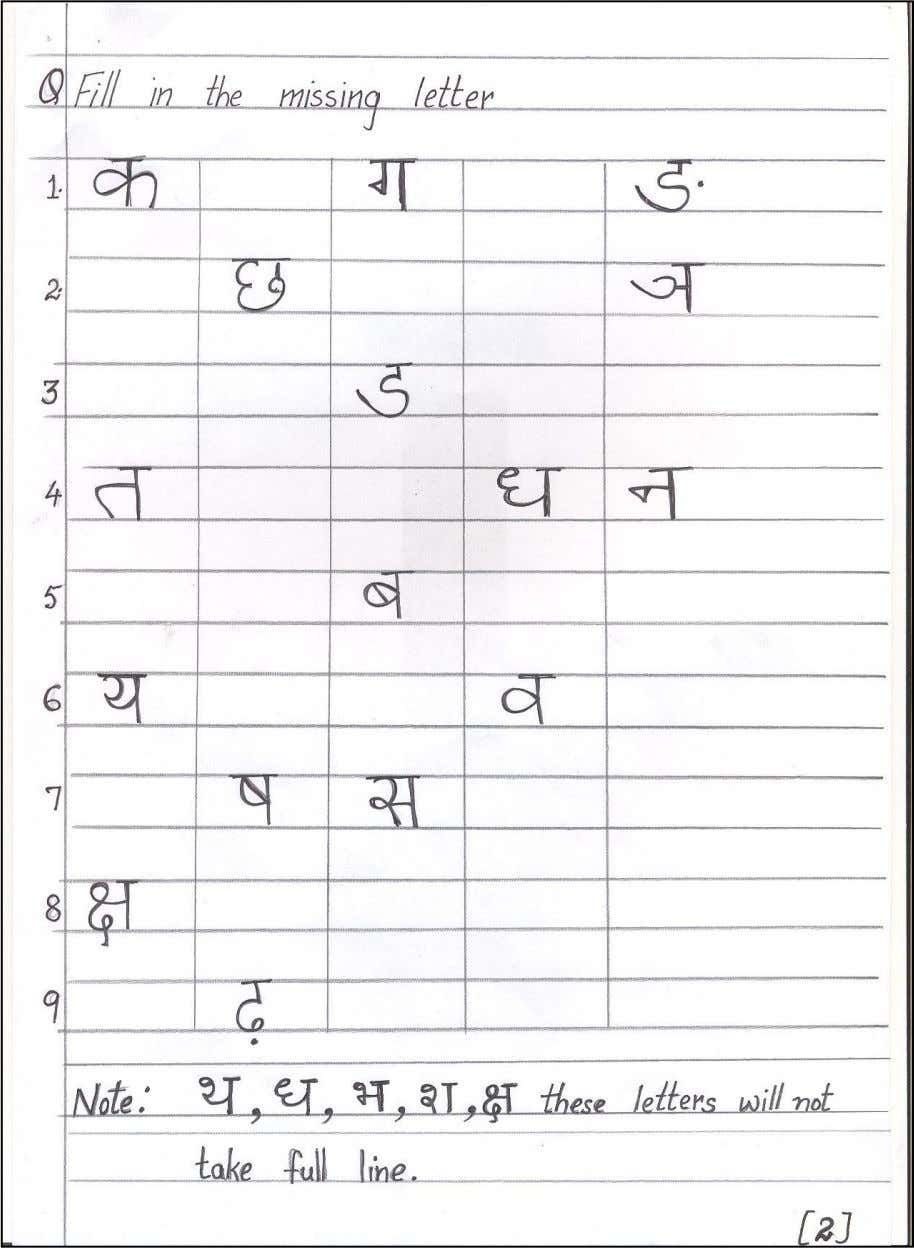 Q Fill in the missing letter
1. क ग ङ
2. छ ञ
3 ड
4 त ध न
5 ब
6 य व
7 ष स
8 क्ष
9 ढ़
Note: थ, ध, भ, श, क्ष these letters will not
take full line.
[2]